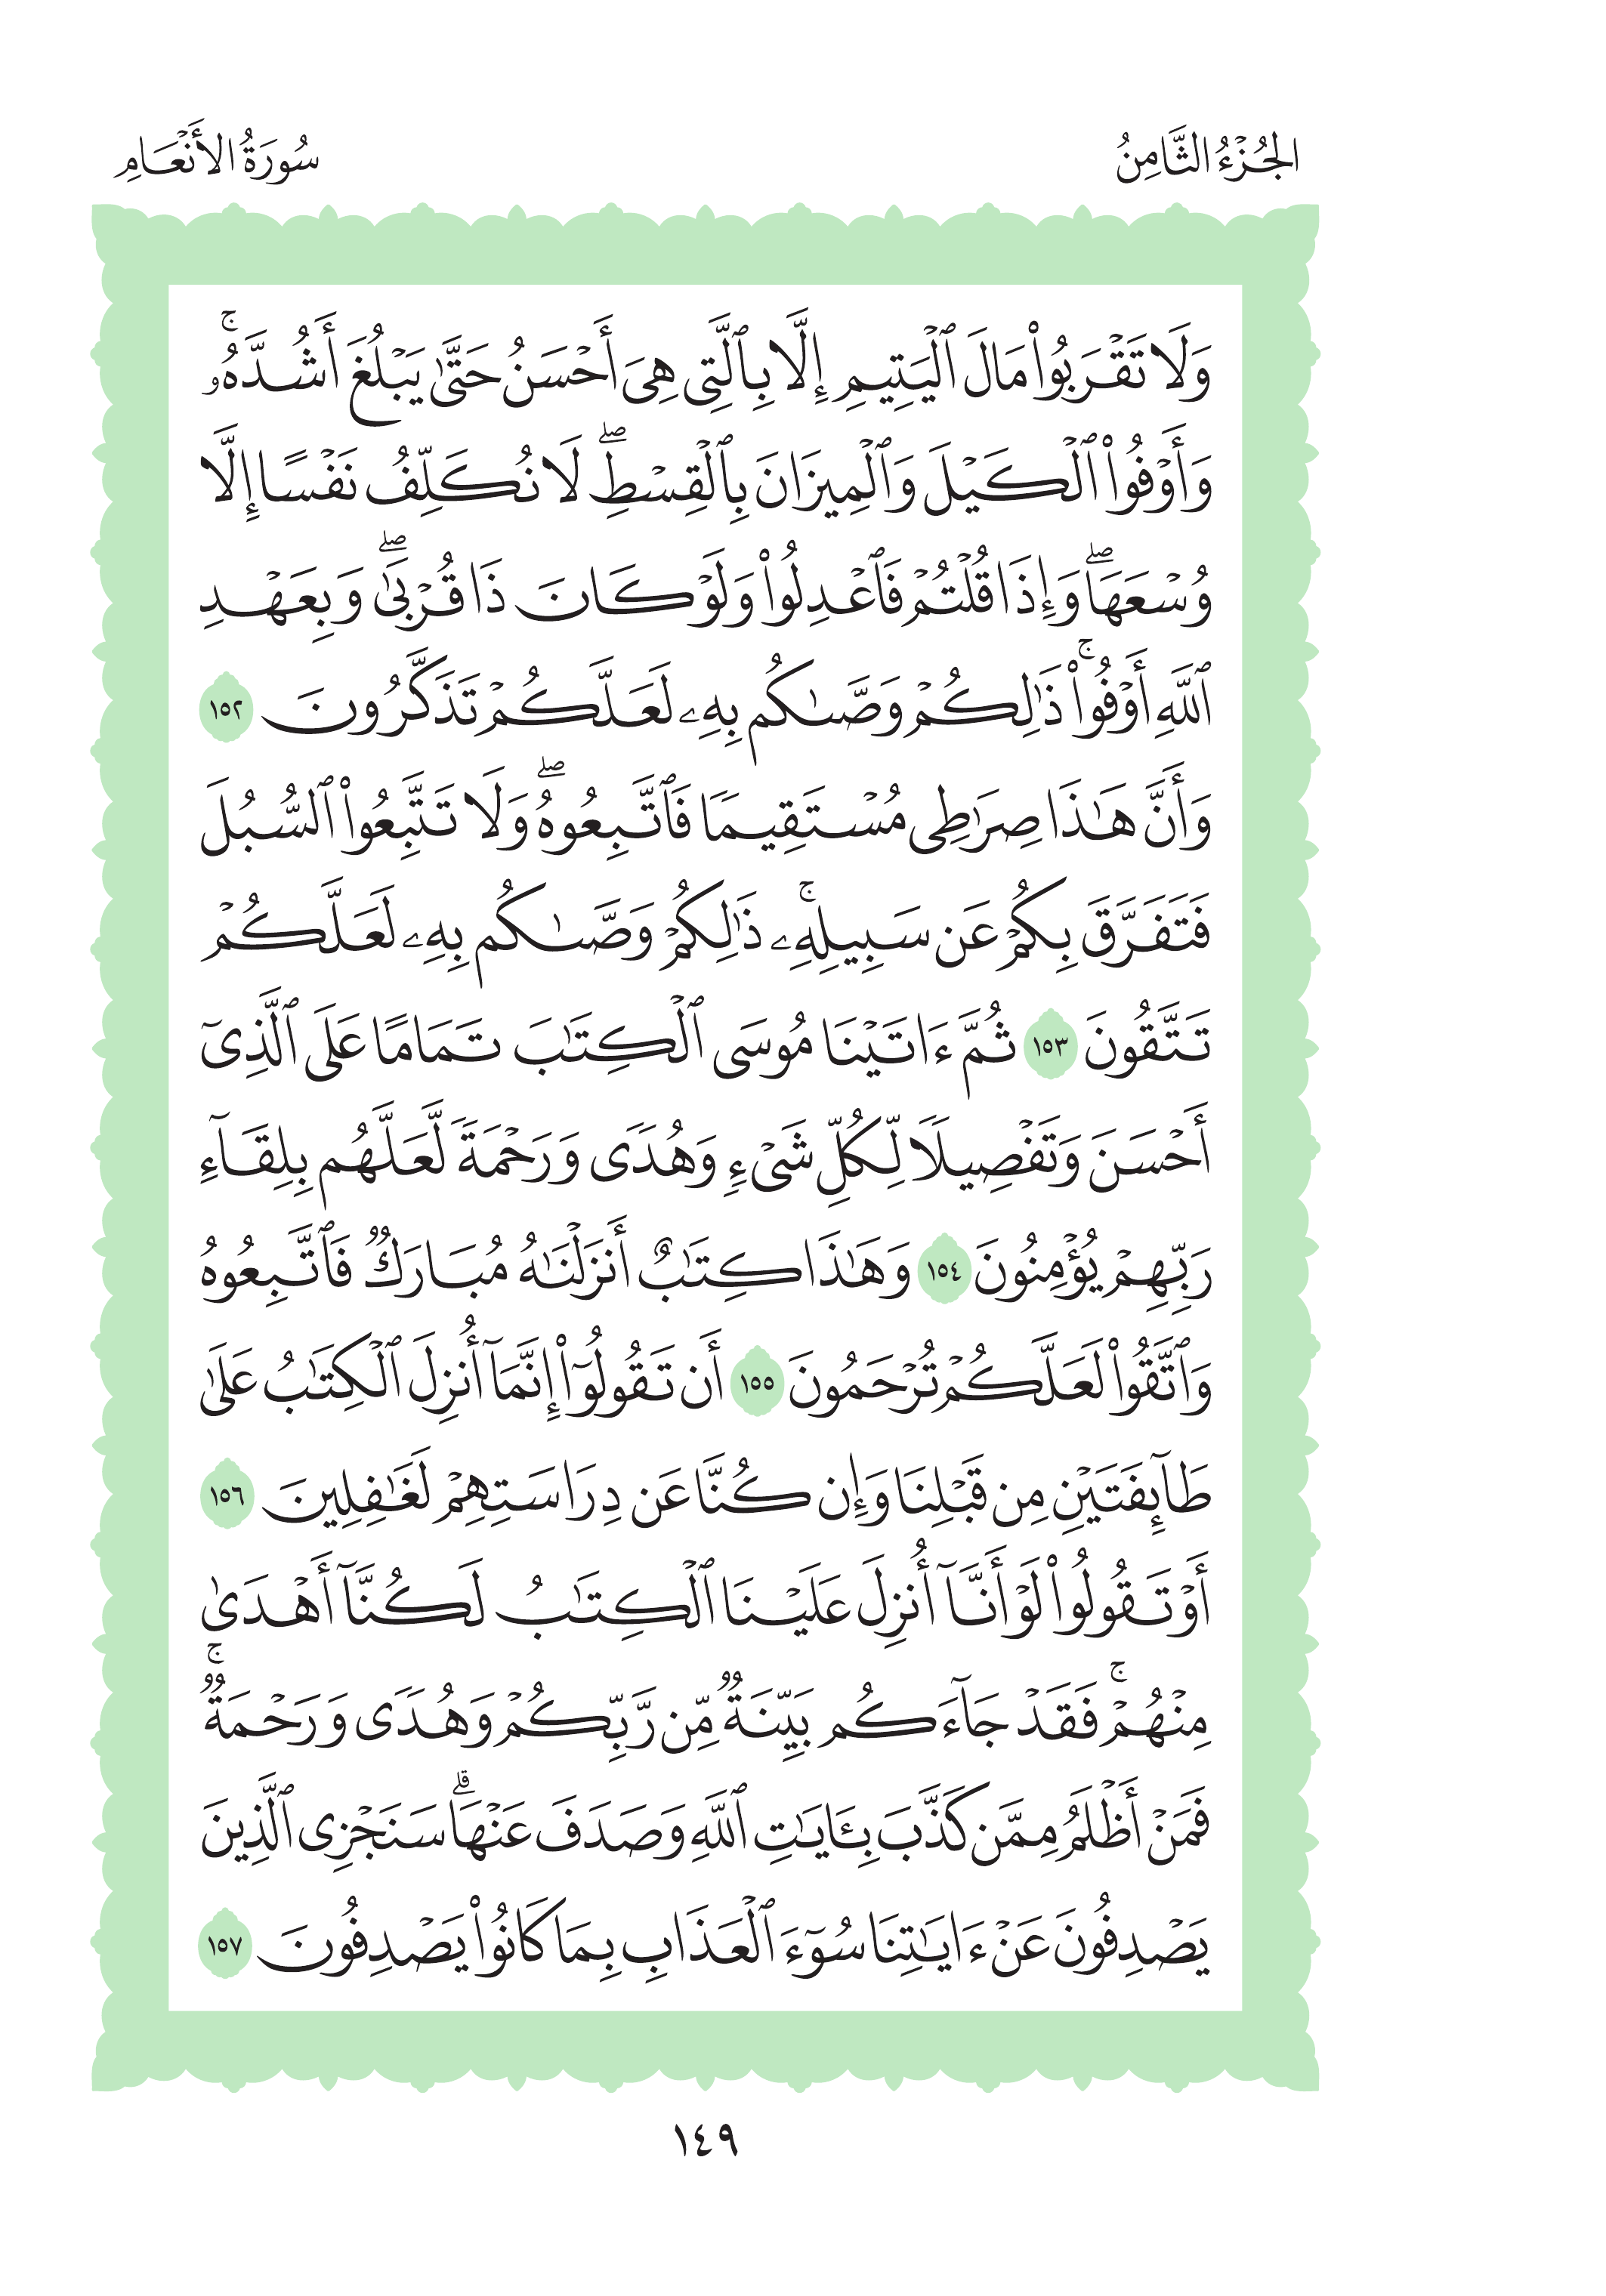 الجُزْءُ الثَّامِنُ
سُورَةُ الأَنْعَامِ
وَلَا تَقۡرَبُواْ مَالَ ٱلۡيَتِيمِ إِلَّا بِٱلَّتِي هِيَ أَحۡسَنُ حَتَّىٰ يَبۡلُغَ أَشُدَّهُۥۚ
وَأَوۡفُواْ ٱلۡكَيۡلَ وَٱلۡمِيزَانَ بِٱلۡقِسۡطِۖ لَا نُكَلِّفُ نَفۡسًا إِلَّا
وُسۡعَهَاۖ وَإِذَا قُلۡتُمۡ فَٱعۡدِلُواْ وَلَوۡ كَانَ ذَا قُرۡبَىٰۖ وَبِعَهۡدِ
ٱللَّهِ أَوۡفُواْۚ ذَٰلِكُمۡ وَصَّىٰكُم بِهِۦ لَعَلَّكُمۡ تَذَكَّرُونَ ١٥٢
وَأَنَّ هَٰذَا صِرَٰطِي مُسۡتَقِيمٗا فَٱتَّبِعُوهُۖ وَلَا تَتَّبِعُواْ ٱلسُّبُلَ
فَتَفَرَّقَ بِكُمۡ عَن سَبِيلِهِۦۚ ذَٰلِكُمۡ وَصَّىٰكُم بِهِۦ لَعَلَّكُمۡ
تَتَّقُونَ ١٥٣ ثُمَّ ءَاتَيۡنَا مُوسَى ٱلۡكِتَٰبَ تَمَامًا عَلَى ٱلَّذِيٓ
أَحۡسَنَ وَتَفۡصِيلٗا لِّكُلِّ شَيۡءٖ وَهُدٗى وَرَحۡمَةٗ لَّعَلَّهُم بِلِقَآءِ
رَبِّهِمۡ يُؤۡمِنُونَ ١٥٤ وَهَٰذَا كِتَٰبٌ أَنزَلۡنَٰهُ مُبَارَكٞ فَٱتَّبِعُوهُ
وَٱتَّقُواْ لَعَلَّكُمۡ تُرۡحَمُونَ ١٥٥ أَن تَقُولُوٓاْ إِنَّمَآ أُنزِلَ ٱلۡكِتَٰبُ عَلَىٰ
طَآئِفَتَيۡنِ مِن قَبۡلِنَا وَإِن كُنَّا عَن دِرَاسَتِهِمۡ لَغَٰفِلِينَ ١٥٦
أَوۡ تَقُولُواْ لَوۡ أَنَّآ أُنزِلَ عَلَيۡنَا ٱلۡكِتَٰبُ لَكُنَّآ أَهۡدَىٰ
مِنۡهُمۡۚ فَقَدۡ جَآءَكُم بَيِّنَةٞ مِّن رَّبِّكُمۡ وَهُدٗى وَرَحۡمَةٞۚ
فَمَنۡ أَظۡلَمُ مِمَّن كَذَّبَ بِـَٔايَٰتِ ٱللَّهِ وَصَدَفَ عَنۡهَاۗ سَنَجۡزِي ٱلَّذِينَ
يَصۡدِفُونَ عَنۡ ءَايَٰتِنَا سُوٓءَ ٱلۡعَذَابِ بِمَا كَانُواْ يَصۡدِفُونَ ١٥٧
١٤٩